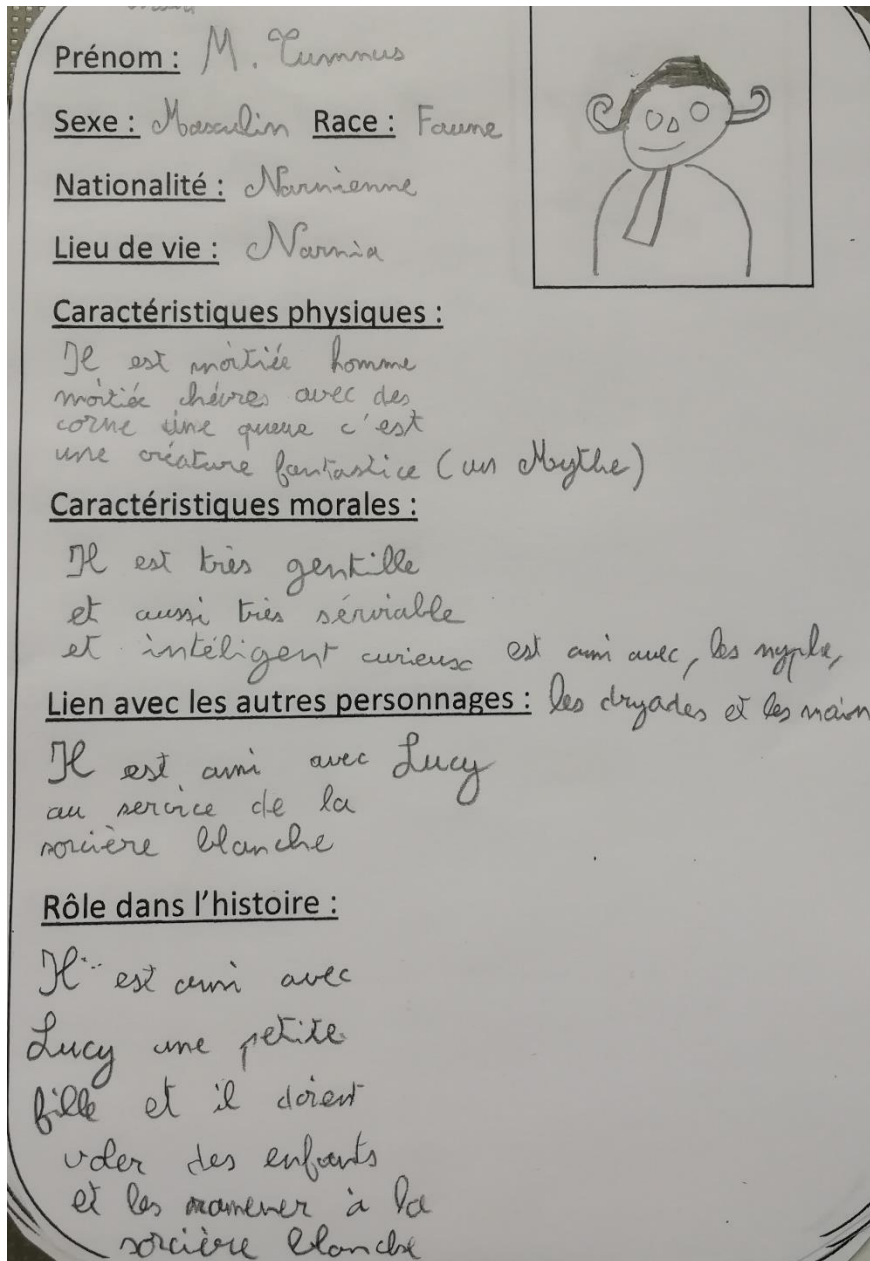 Prénom : M. Tumnus
Sexe : Masculin Race : Faune
Nationalité : Narnienne
Lieu de vie : Narnia
Caractéristiques physiques :
Il est moitiée homme
moitiée chévres avec des
corne une queue c'est
une créature fantastice (un Mythe)
Caractéristiques morales :
Il est très gentille
et aussi très sérviable
et intéligent curieux est ami avec, les nyple,
Lien avec les autres personnages : les dryades et les nain
Il est ami avec Lucy
au service de la
sorcière blanche
Rôle dans l'histoire :
Il est ami avec
Lucy une petite
fille et il doient
voler des enfants
et les ramener à la
sorcière blanche